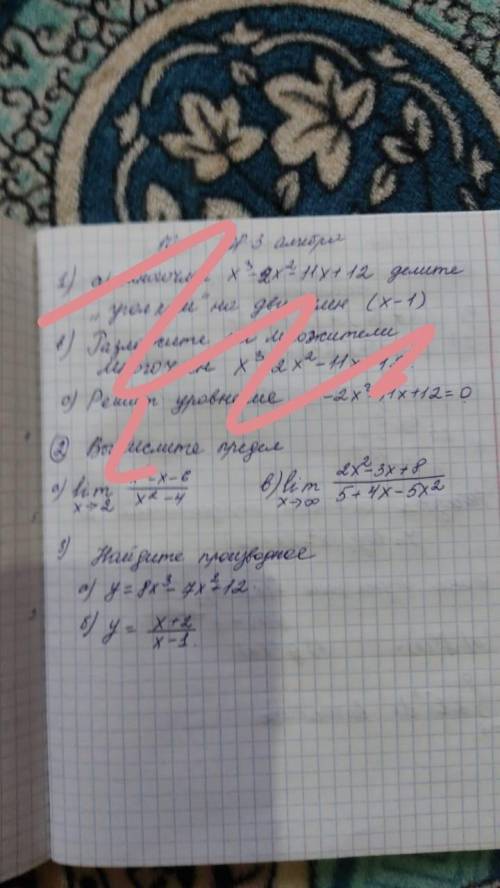 №3 алгебра
1) а) x³-2x²-11x+12 делите
на (x-1)
в) множители
x³ 2x²-11x
с) уровнение -2x² 11x+12=0
② Вычислите предел
а) lim x→2 -x-6 / x²-4 в) lim x→∞ 2x²-3x+8 / 5+4x-5x²
3) Найдите производное
а) y=8x³-7x²+12
б) y= x+2 / x-1